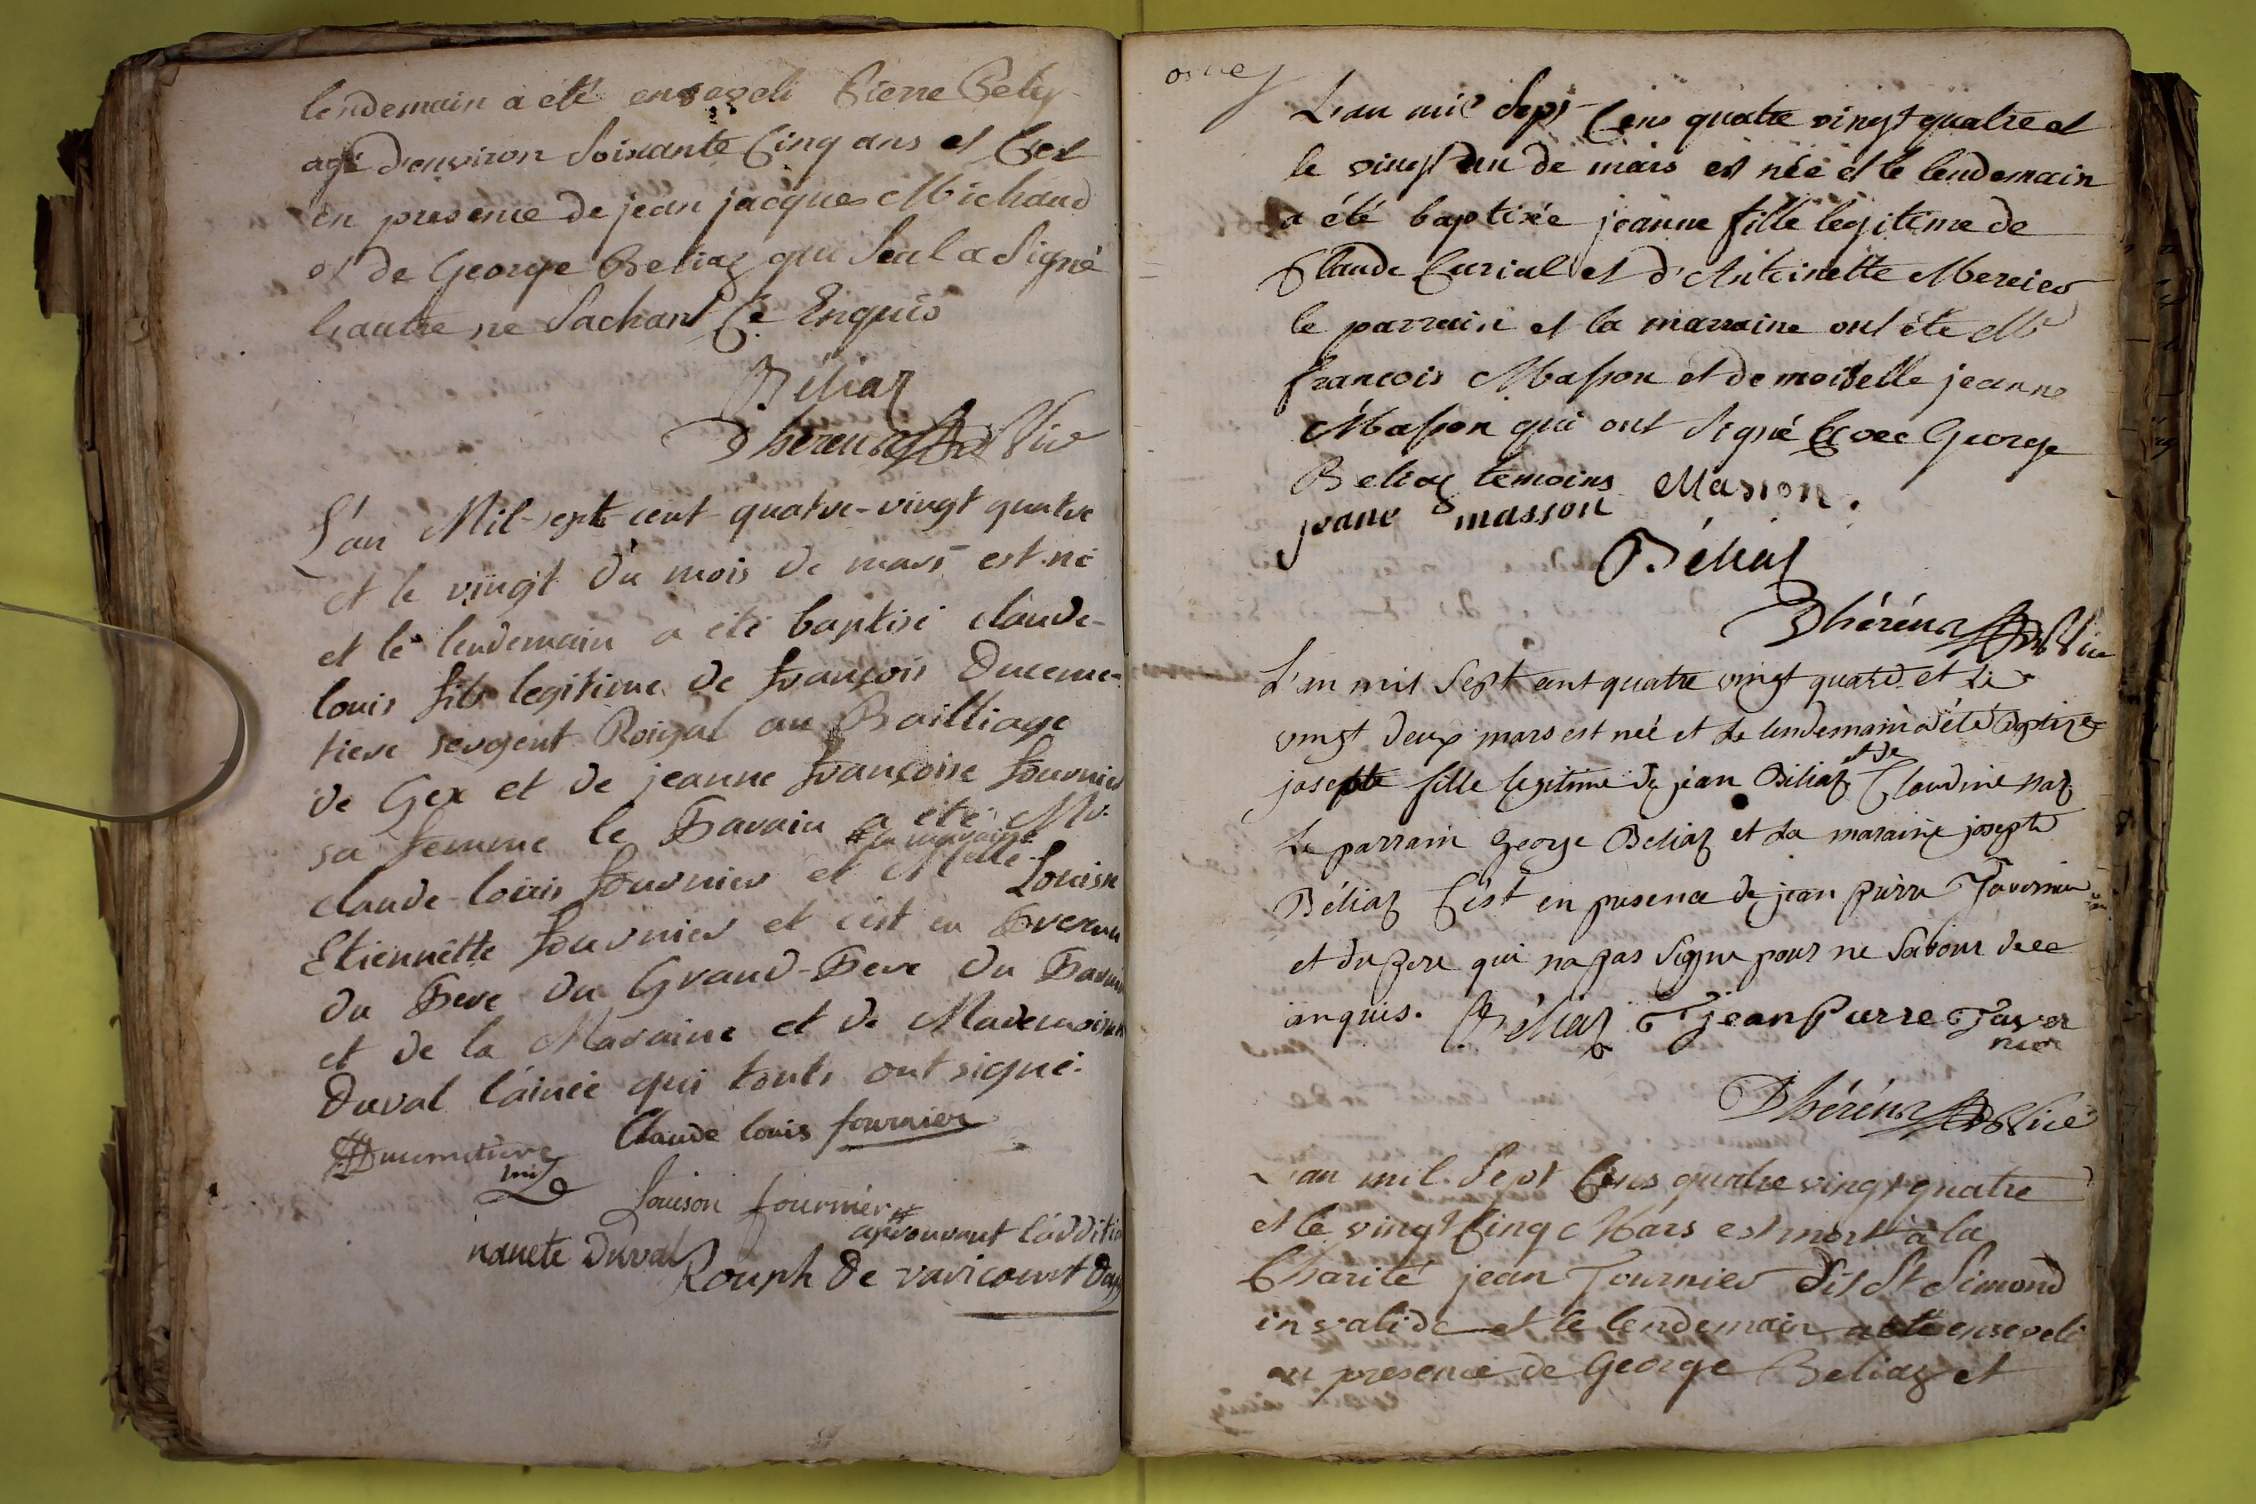 lendemain a été enseveli Pierre Bely
agé d'environ Soixante Cinq ans et C'est
en presence de jean jacques Michaud
et de George Beliaz qui Seul a Signé
L'autre ne Sachant Ce Enquis
Béliaz
Dhereu Vic
L'an Mil-sept-cent-quatre-vingt quatre
et le vingt du mois de mars est né
et le lendemain a été baptisé claude-
louis fils legitime de françois Duceme-
tiere sergent Roiyal au Bailliage
de Gex et de jeanne françoise fournier
sa femme le Parain a été Mr.
# la marraine
claude-louis fournier et Melle Louise
Etiennêtte fournier et c'est en Presence
du Pere du Grand-Pere du Parain
et de la Maraine et de Mademoiselle
Duval l'ainée qui touts ont signé.
Ducimetiere Claude louis fournier
Louison fournier
# aprouvant l'addition
nanete Duval
Rouph de varicourt Doyen
L'an mil Sept Cens quatre vingt quatre et
le vingt un de mars est née et le lendemain
a été baptisée jeanne fille legitime de
Claude Curial et d'Antoinette Mercier
le parrain et la marraine ont été Mr
françois Masson et demoiselle jeanne
Masson qui ont Signé avec George
Beliaz temoins Masson.
jeane masson
Béliaz
Dhéréu Vic
L'an mil Sept cent quatre vingt quatre et le
vingt deux mars est née et le lendemain a été baptizé
et de
josepte fille legitime de jean Béliaz Claudine naz
Le parrain George Beliaz et la maraine josepte
Béliaz C'est en presence de jean pierre Tavernier
et du pere qui na pas Signe pour ne Savoir de ce
anquis. Béliaz jean Pierre Taver
nier
Dhéréu Vic
L'an mil Sept Cens quatre vingt quatre
et le vingt Cinq Mars est mort à la
Charité jean Fournier dit St Simond
invalide et le lendemain a été enseveli
en presence de George Beliaz et